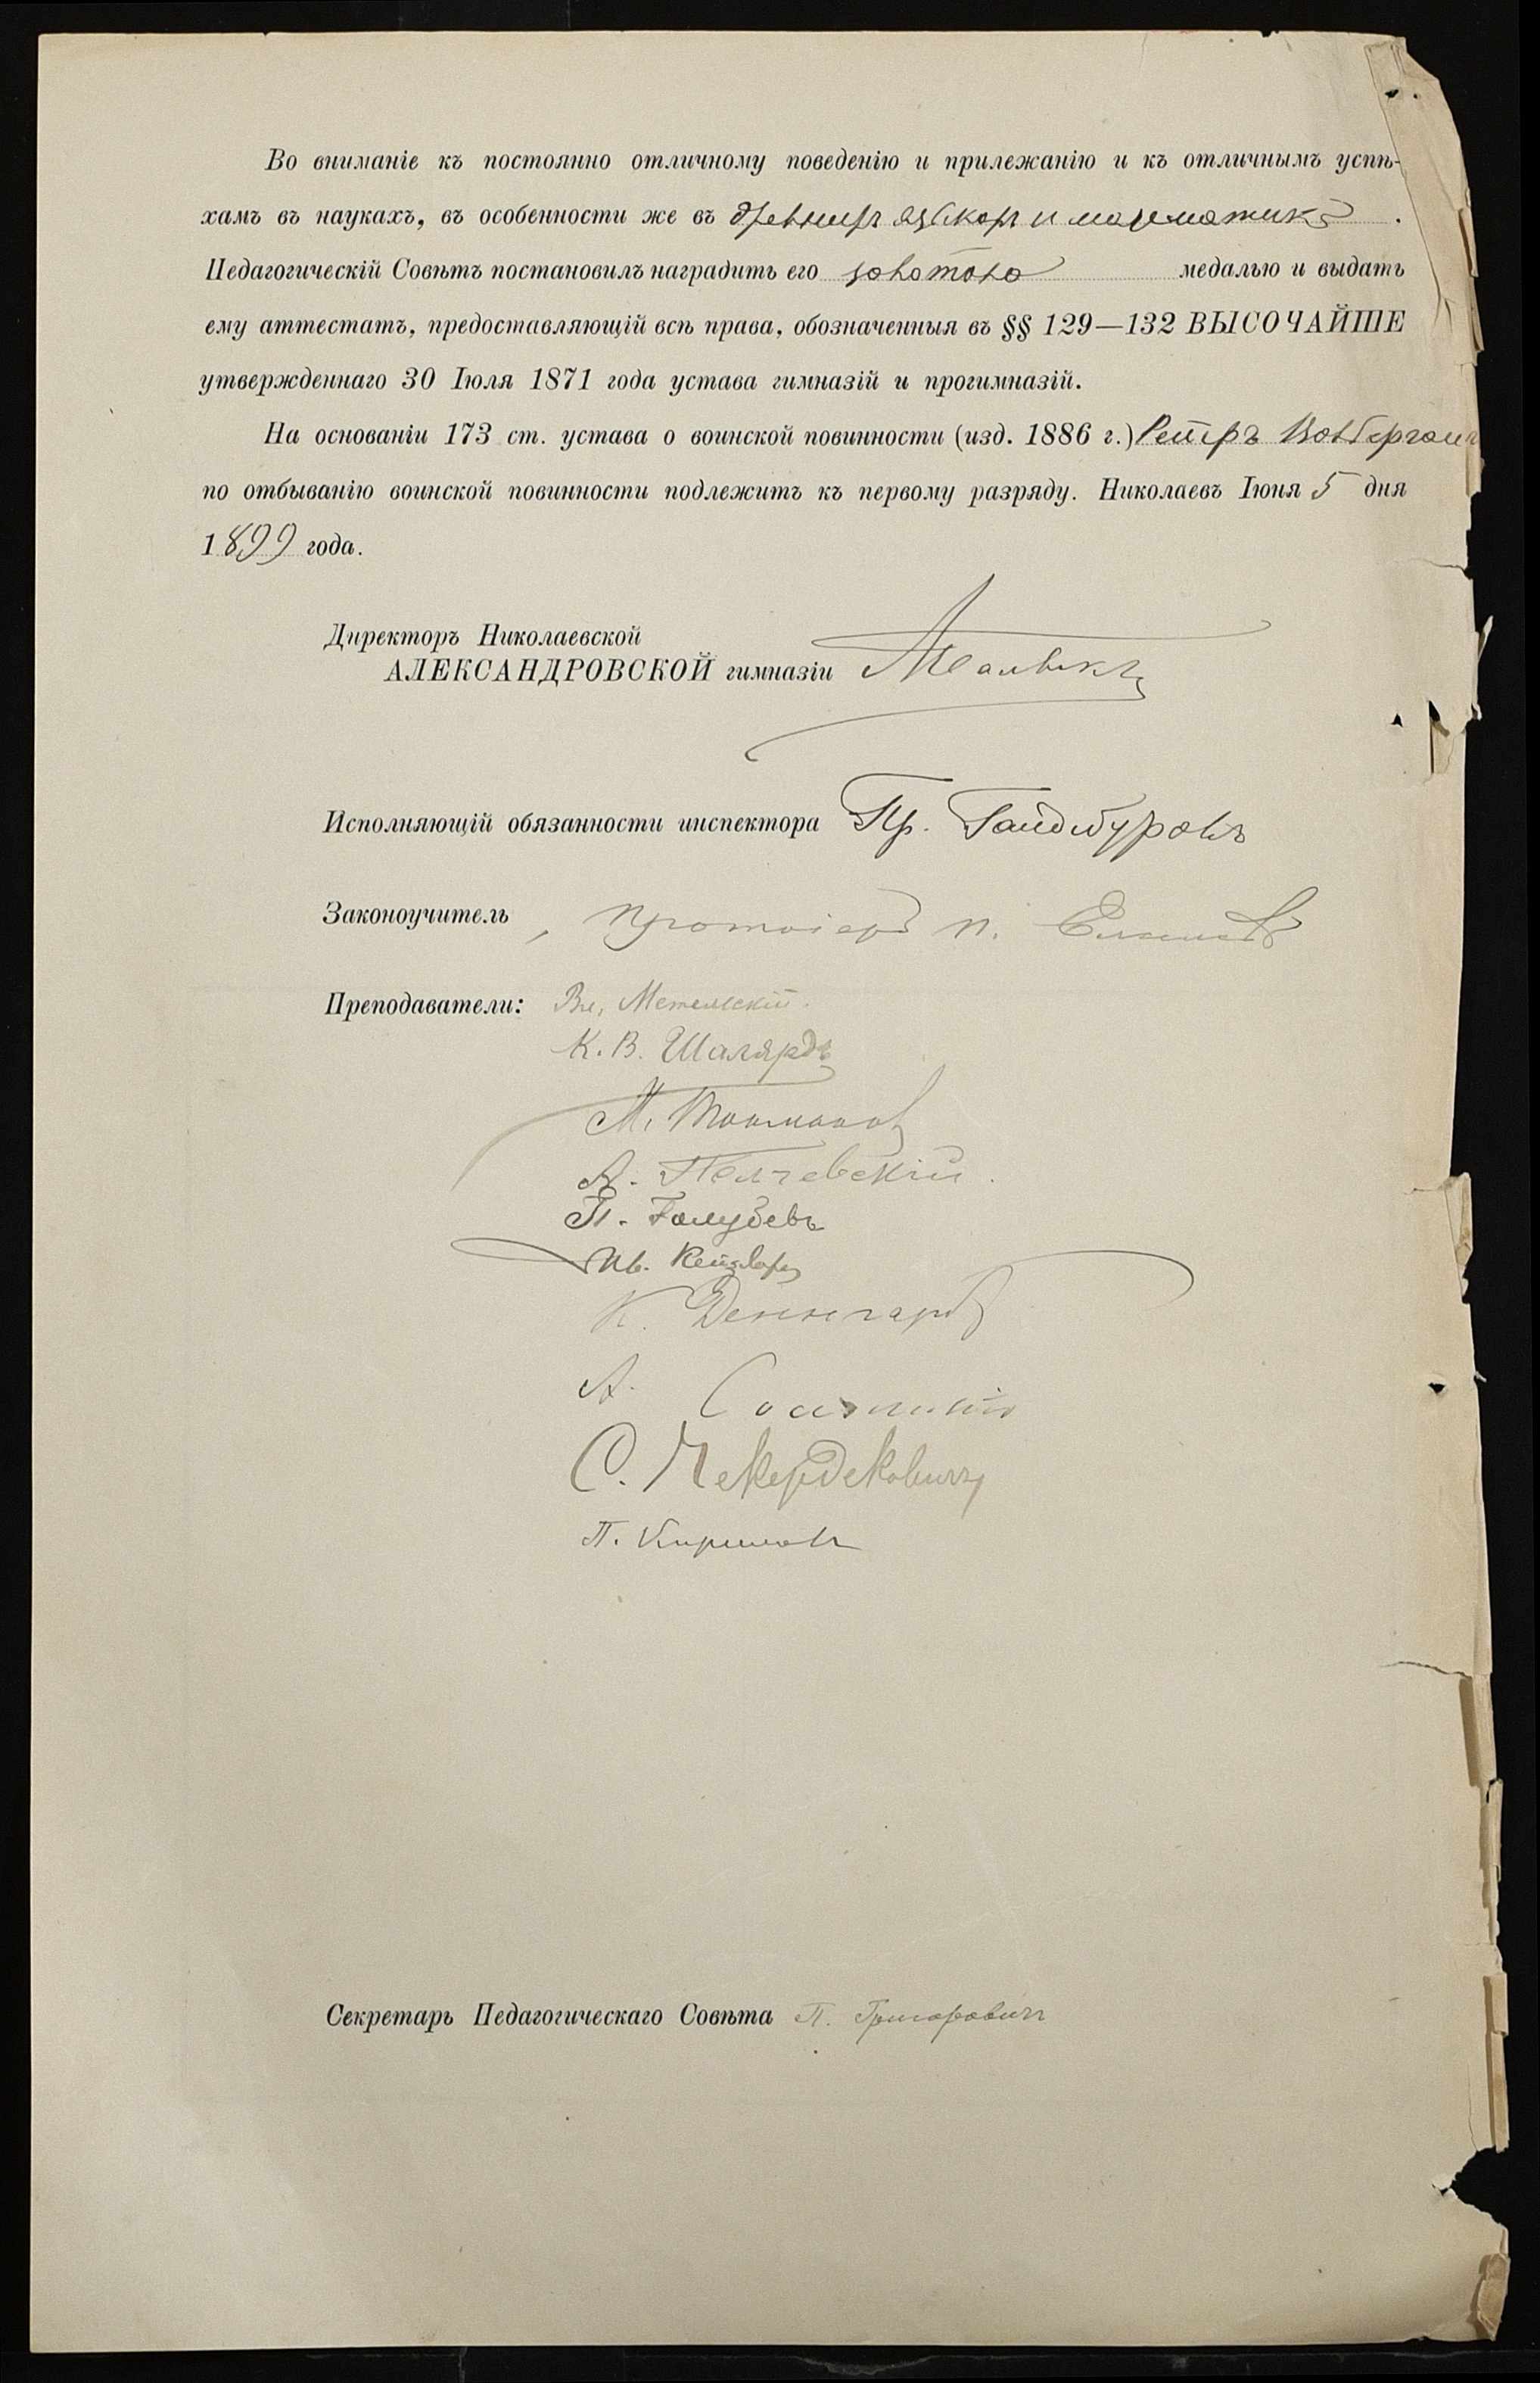 Во вниманіе къ постоянно отличному поведенію и прилежанію и къ отличнымъ успѣ-
хамъ въ наукахъ, въ особенности же въ древнихъ языкахъ и математикѣ.
Педагогическій Совѣтъ постановилъ наградить его золотою медалью и выдать
ему аттестатъ, предоставляющій всѣ права, обозначенныя въ §§ 129—132 ВЫСОЧАЙШЕ
утвержденнаго 30 Іюля 1871 года устава гимназій и прогимназій.
На основаніи 173 ст. устава о воинской повинности (изд. 1886 г.)
по отбыванію воинской повинности подлежитъ къ первому разряду. Николаевъ Іюня 5 дня
1899 года.
Директоръ Николаевской
АЛЕКСАНДРОВСКОЙ гимназіи
Исполняющій обязанности инспектора Гр. Гайдебуровъ
Законоучитель, протоіерей п.
Преподаватели: Вл. Метельскій.
К. В. Шалярдъ
А.
П. Голубевъ
Ив.
К. Деннгардъ
А.
С. Чекердековичъ
П. Кирилловъ
Секретарь Педагогическаго Совѣта П. Григоровичъ